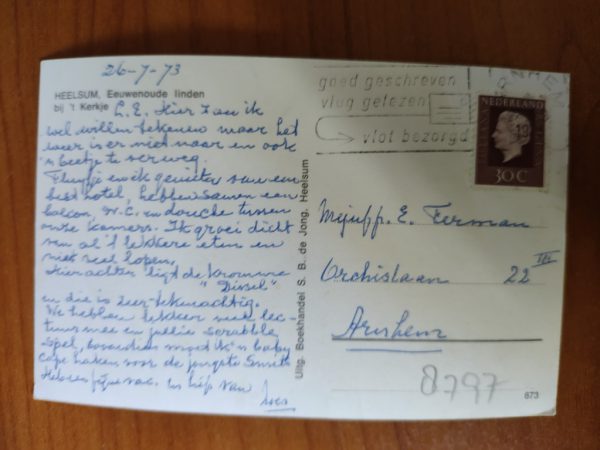 26-7-73
HEELSUM, Eeuwenoude linden
bij 't Kerkje
L. E. Hier zou ik
wel willen tekenen maar het
weer is er niet naar en ook
'n beetje te ver weg.
genieten van een
best hotel, hebben samen een
balcon, w.c. en douche tussen
onze kamers. Ik groei dicht
van al 't lekkere eten en
niet veel lopen.
Hier achter ligt de kromme
"Dissel"
en die is zeer tekenachtig.
We hebben lekker veel lec-
tuur mee en jullie scrabble
spel, bovendien moet ik 'n baby
cape haken voor de jongste Smith
Heb een fijne vac. en liefs van
Uitg. Boekhandel S. B. de Jong, Heelsum
goed geschreven
vlug gelezen
vlot bezorgd
NEDERLAND
30 C
Mejuffr. E. Ferman
Orchislaan 22 III
Arnhem
8797
873